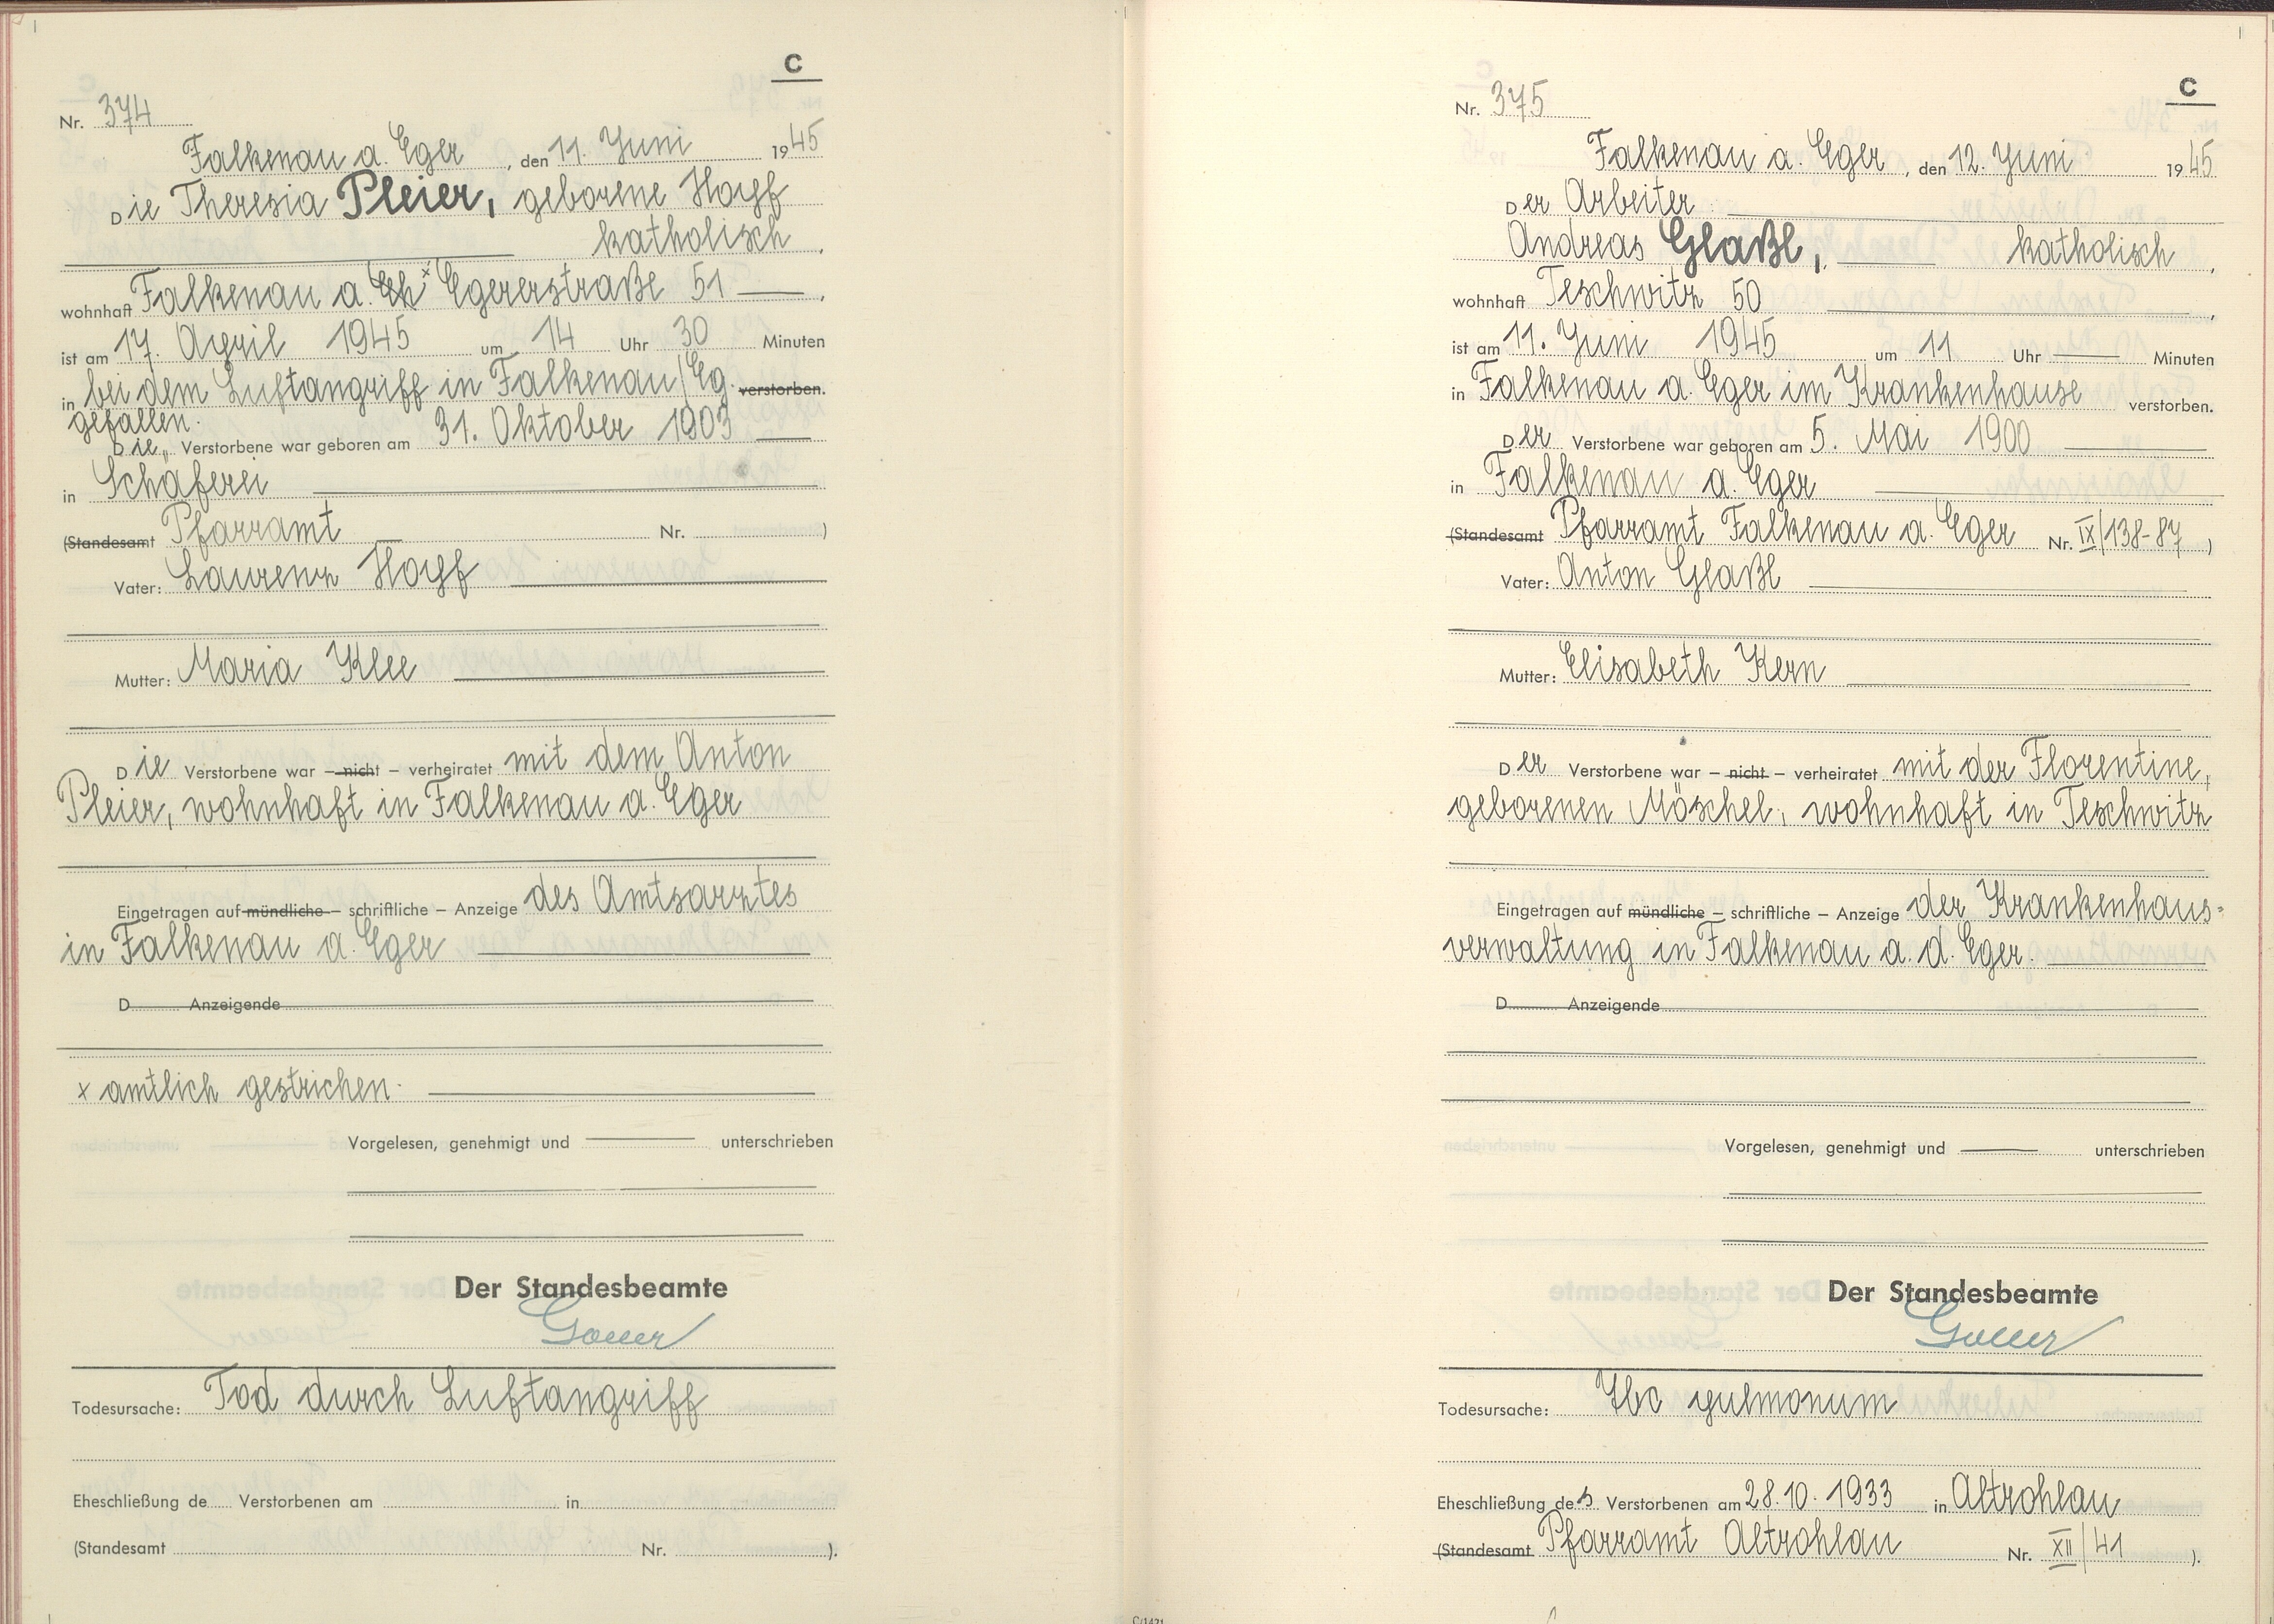 C
Nr. 374
Falkenau a. Eger, den 11. Juni 1945
Die Theresia Pleier, geborene Hopf
katholisch,
wohnhaft Falkenau a. Eh x Egererstraße 51,
ist am 17. April 1945 um 14 Uhr 30 Minuten
in bei dem Luftangriff in Falkenau/Eg. verstorben.
gefallen.
Die Verstorbene war geboren am 31. Oktober 1903
in Schäferei
(Standesamt Pfarramt Nr. )
Vater: Laurenz Hopf
Mutter: Maria Klee
Die Verstorbene war – nicht – verheiratet mit dem Anton
Pleier, wohnhaft in Falkenau a. Eger
Eingetragen auf mündliche – schriftliche – Anzeige des Amtsarztes
in Falkenau a. Eger
D Anzeigende
x amtlich gestrichen.
Vorgelesen, genehmigt und unterschrieben
Der Standesbeamte
Todesursache: Tod durch Luftangriff
Eheschließung de Verstorbenen am in
(Standesamt Nr. ).
C
Nr. 375
Falkenau a. Eger, den 12. Juni 1945
Der Arbeiter
Andreas Glaßl, katholisch,
wohnhaft Teschwitz 50,
ist am 11. Juni 1945 um 11 Uhr Minuten
in Falkenau a. Eger im Krankenhause verstorben.
Der Verstorbene war geboren am 5. Mai 1900
in Falkenau a. Eger
(Standesamt Pfarramt Falkenau a. Eger Nr. IX/138-87)
Vater: Anton Glaßl
Mutter: Elisabeth Kern
Der Verstorbene war – nicht – verheiratet mit der Florentine,
geborenen Möschel, wohnhaft in Teschwitz
Eingetragen auf mündliche – schriftliche – Anzeige der Krankenhaus=
verwaltung in Falkenau a. d. Eger.
D Anzeigende
Vorgelesen, genehmigt und unterschrieben
Der Standesbeamte
Todesursache: Tbc pulmonum
Eheschließung des Verstorbenen am 28.10.1933 in Altrohlau
(Standesamt Pfarramt Altrohlau Nr. XII/41 ).